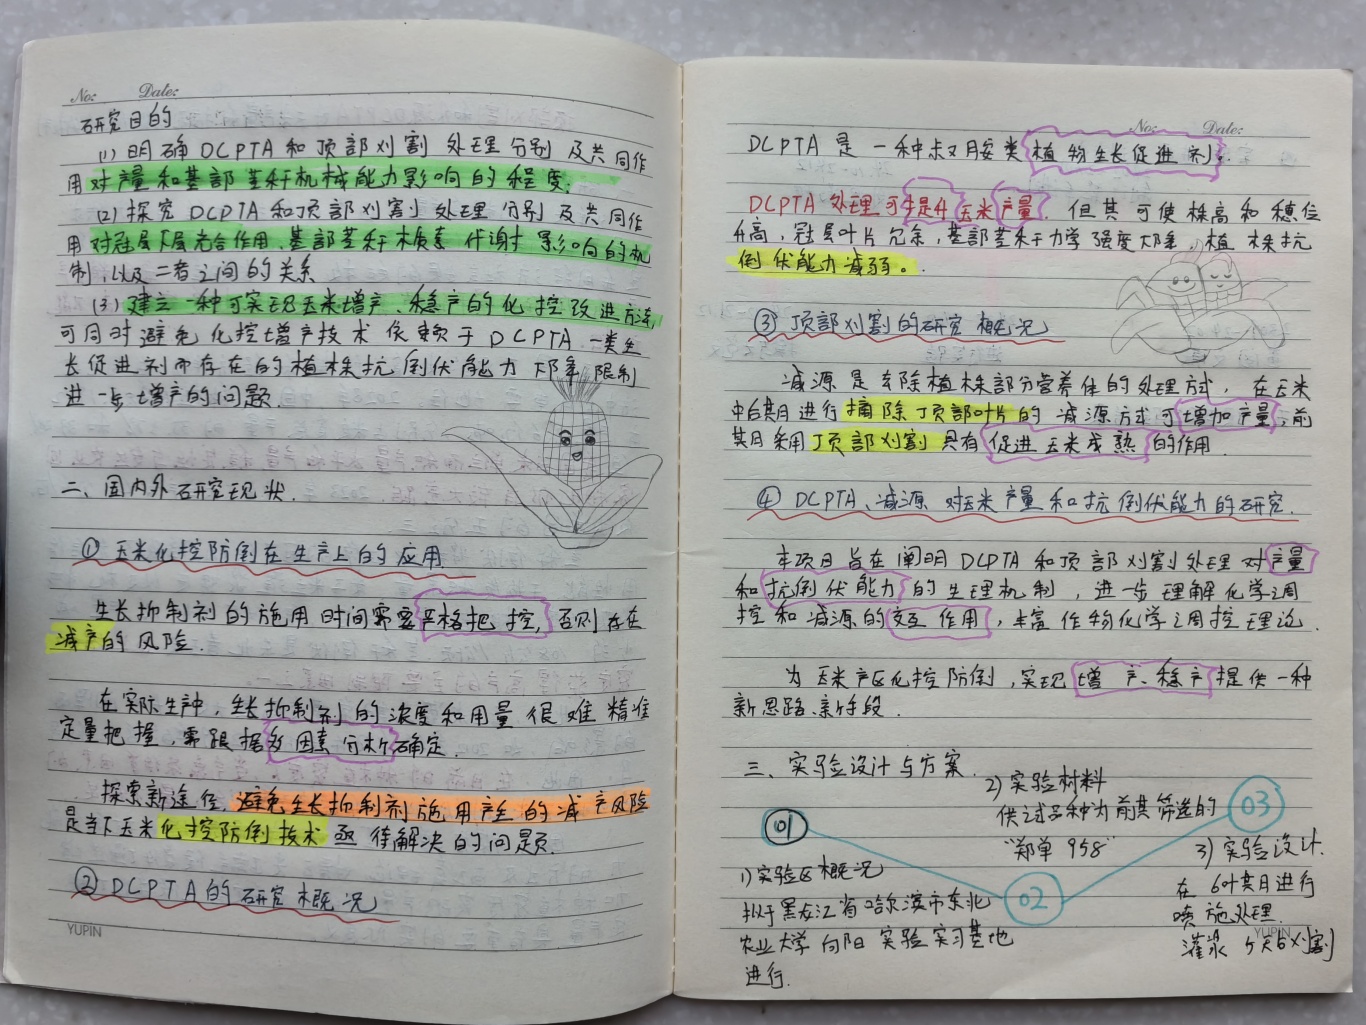 No:
Date:
研究目的
(1) 明确DCPTA和顶部刈割处理分别及共同作
用对产量和基部茎秆机械能力影响的程度;
(2) 探究DCPTA和顶部刈割处理分别及共同作
用对冠层下层光合作用、基部茎秆木质素代谢影响的机
制,以及二者之间的关系
(3) 建立一种可实现玉米增产、稳产的化控改进方法,
可同时避免化控增产技术依赖于DCPTA一类生
长促进剂而存在的植株抗倒伏能力下降限制
进一步增产的问题.
二、国内外研究现状.
① 玉米化控防倒在生产上的应用
生长抑制剂的施用时间需要严格把控,否则存在
减产的风险.
在实际生产中,生长抑制剂的浓度和用量很难精准
定量把握,需跟据多因素分析确定.
探索新途径,避免生长抑制剂施用产生的减产风险
是当下玉米化控防倒技术亟待解决的问题.
② DCPTA的研究概况
YUPIN
No:
Date:
DCPTA是一种叔胺类植物生长促进剂.
DCPTA处理可提升玉米产量.但其可使株高和穗位
升高,冠层叶片冗余,基部茎秆力学强度下降,植株抗
倒伏能力减弱。
③ 顶部刈割的研究概况
减源是去除植株部分营养体的处理方式,在玉米
中后期进行摘除顶部叶片的减源方式可增加产量,前
期采用顶部刈割具有促进玉米成熟的作用.
④ DCPTA、减源对玉米产量和抗倒伏能力的研究.
本项目旨在阐明DCPTA和顶部刈割处理对产量
和抗倒伏能力的生理机制,进一步理解化学调
控和减源的交互作用,丰富作物化学调控理论.
为玉米产区化控防倒,实现增产、稳产提供一种
新思路、新手段.
三、实验设计与方案.
01
1) 实验区概况
拟于黑龙江省哈尔滨市东北
农业大学向阳实验实习基地
进行.
2) 实验材料
供试品种为前期筛选的
"郑单958"
02
03
3) 实验设计.
在6叶期进行
喷施处理.
灌浆 刈割
YUPIN